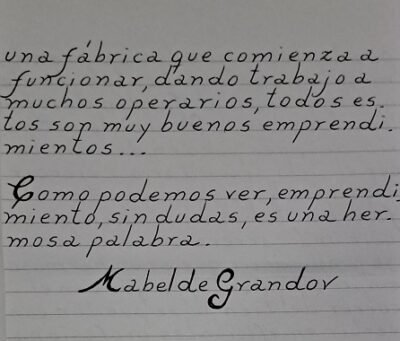 una fábrica que comienza a
funcionar, dando trabajo a
muchos operarios, todos es.
tos son muy buenos emprendi.
mientos...
Como podemos ver, emprendi.
miento, sin dudas, es una her.
mosa palabra.
Mabel de Grandov